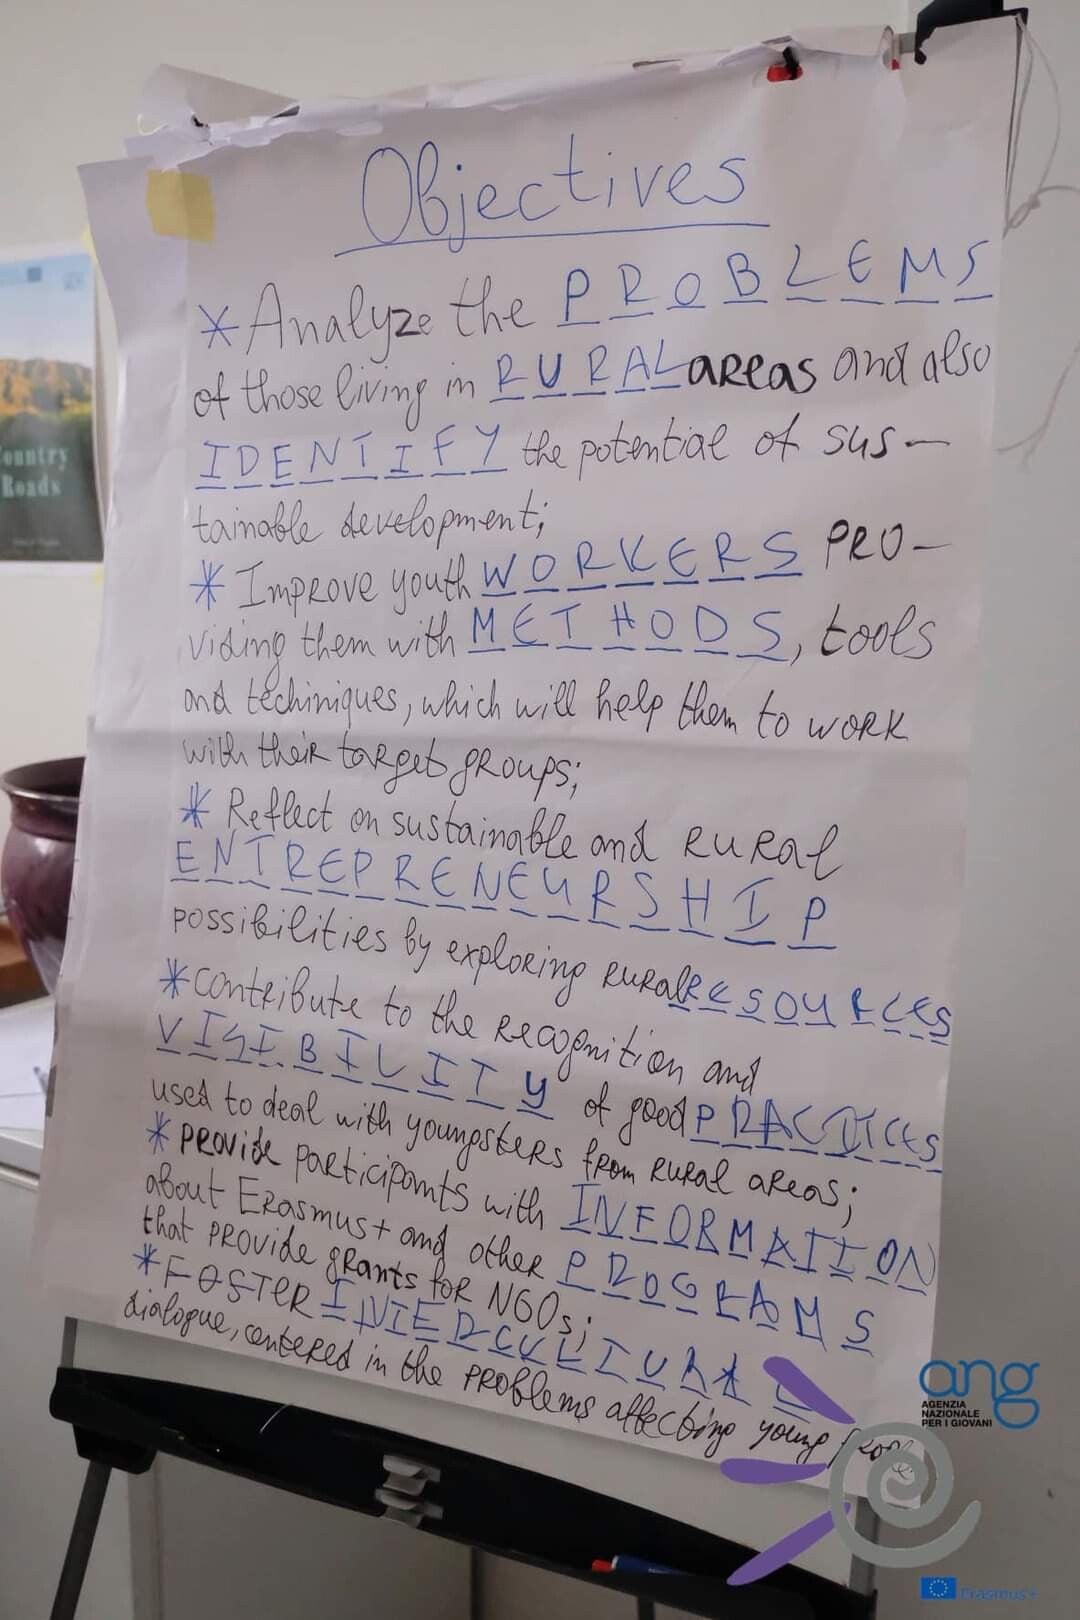 Objectives
* Analyze the PROBLEMS
of those living in RURAL areas and also
IDENTIFY the potential of sus-
tainable development;
* Improve youth WORKERS pro-
viding them with METHODS, tools
and techiniques, which will help them to work
with their target groups;
* Reflect on sustainable and rural
ENTREPRENEURSHIP
possibilities by exploring rural RESOURCES
* Contribute to the recognition and
VISIBILITY of good PRACTICES
used to deal with youngsters from rural areas;
* Provide participants with INFORMATION
about Erasmus+ and other PROGRAMS
that provide grants for NGOs;
* FOSTER INTERCULTURAL
dialogue, centered in the problems affecting young people
Country
Roads
ang
AGENZIA
NAZIONALE
PER I GIOVANI
Erasmus+